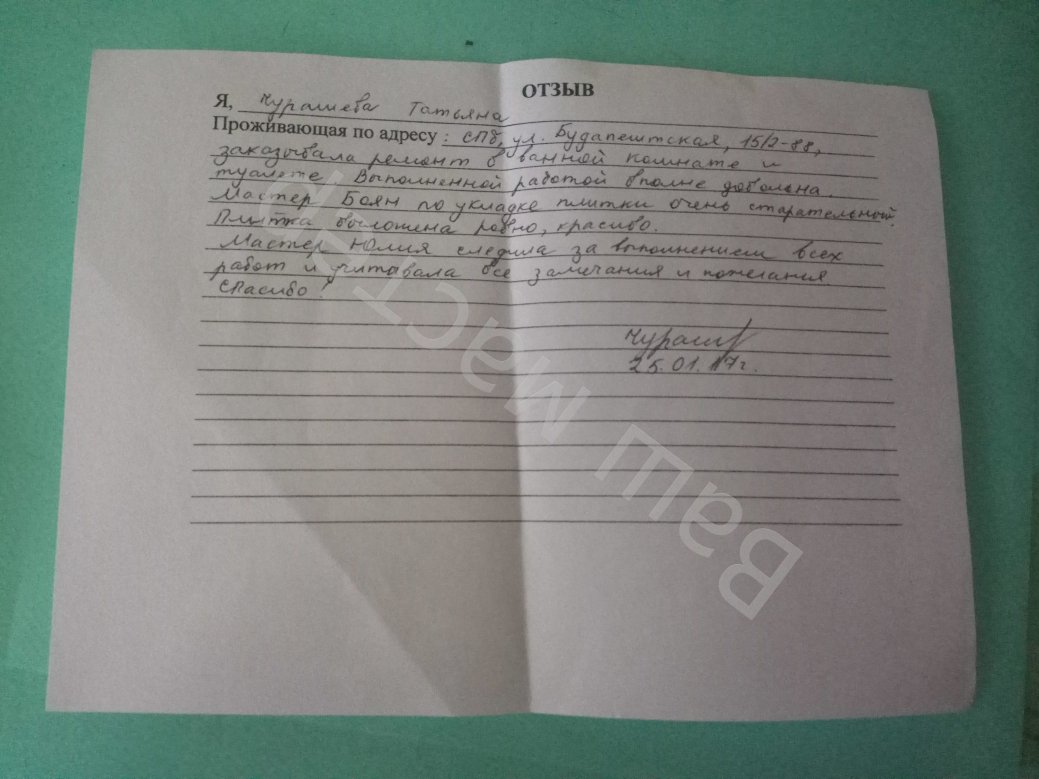 ОТЗЫВ
Я, Чурашева Татьяна
Проживающая по адресу: СПб, ул. Будапештская, 15/2-88,
заказывала ремонт в ванной комнате и
туалете. Выполненной работой вполне довольна.
Мастер Боян по укладке плитки очень старательный.
Плитка выложена ровно, красиво.
Мастер Юлия следила за выполнением всех
работ и учитывала все замечания и пожелания.
Спасибо!
25.01.17г.
Ваш Мастер